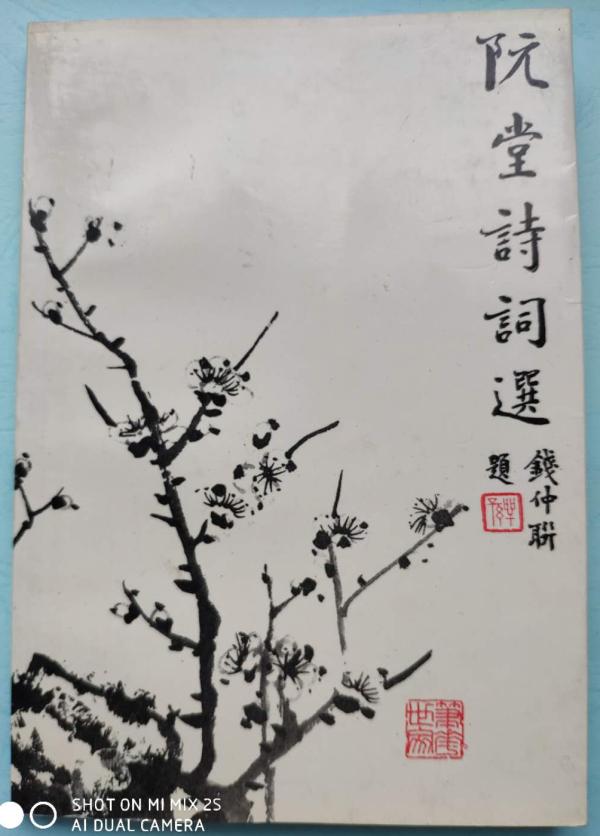 阮堂詩詞選
錢仲聯
題
SHOT ON MI MIX 2S
AI DUAL CAMERA